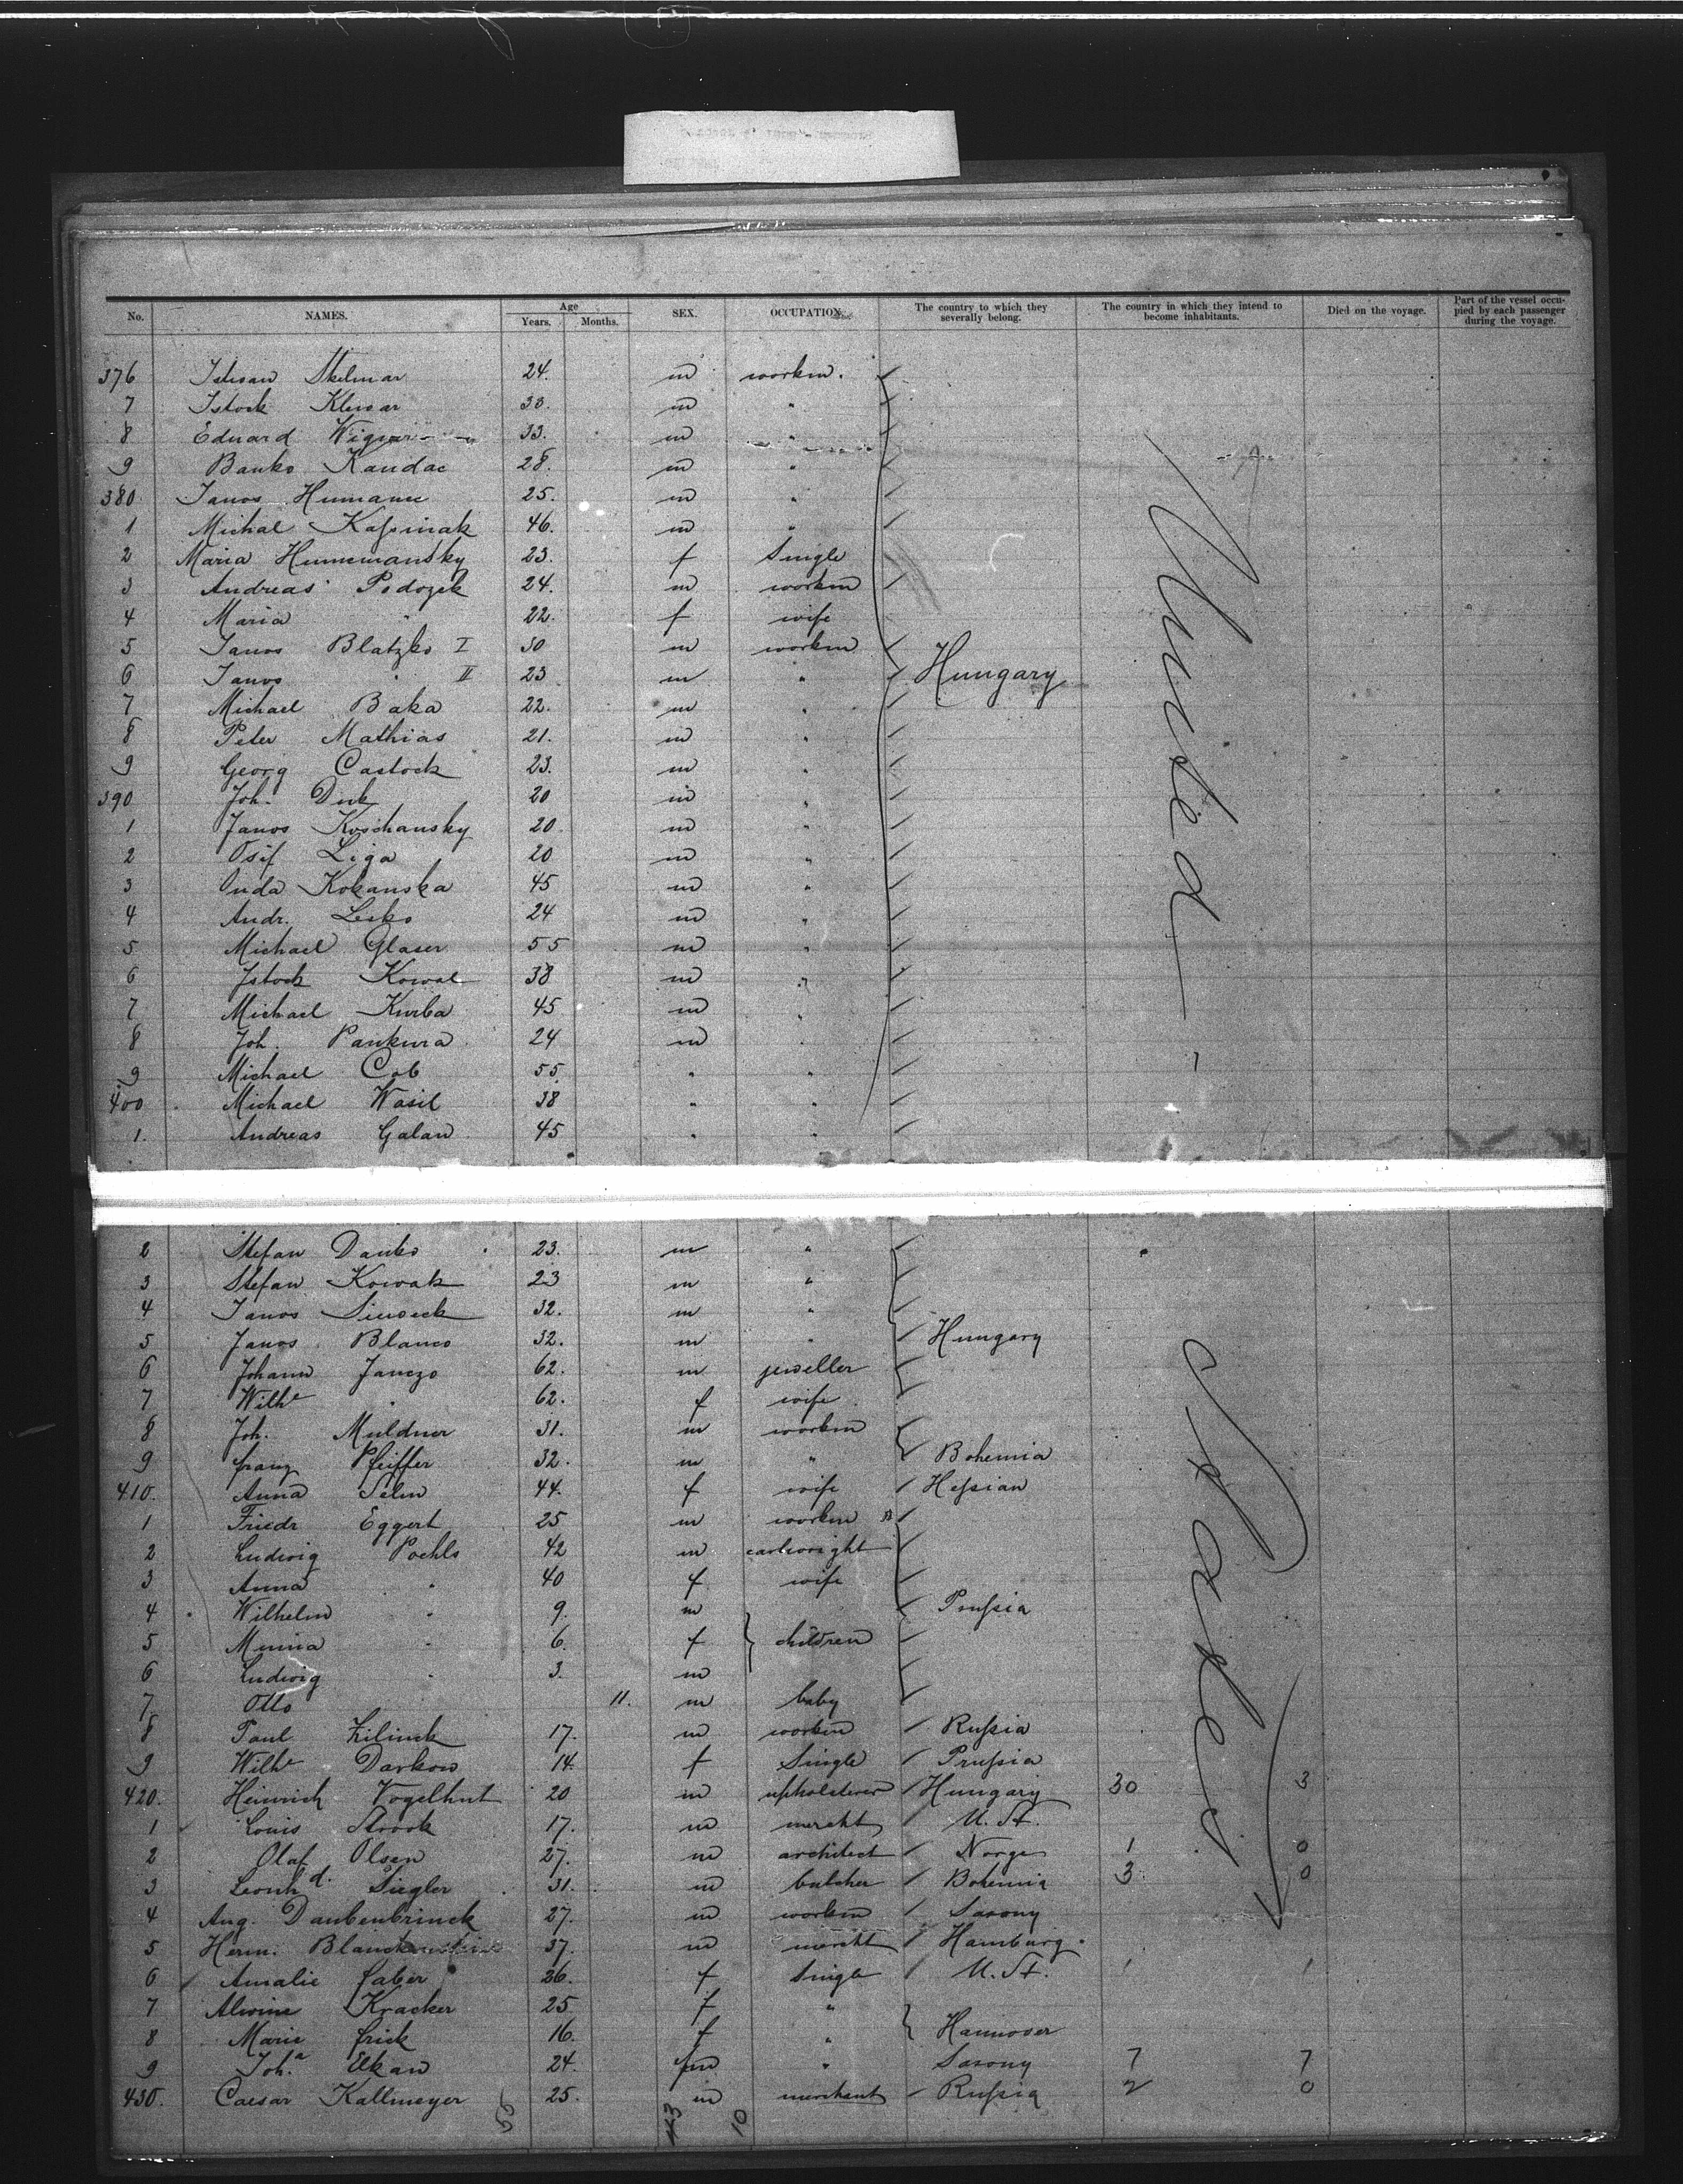 No. NAMES. Age Years. Months. SEX. OCCUPATION. The country to which they severally belong. The country in which they intend to become inhabitants. Died on the voyage. Part of the vessel occupied by each passenger during the voyage.
376 Istvan Skelmar 24. m workm.
7 Istock Klewar 33. m "
8 Eduard 33. m "
9 Banko Kandac 28. m "
380 Janos Humann 25. m "
1 Michal Kaſsinak 46. m "
2 Maria Hunnemansky 23. f Single
3 Andreas Podozek 24. m workm
4 Maria " 22. f wife
5 Janos Blatzko I 30 m workm
6 Janos " II 23 m " Hungary
7 Michael Baka 22. m "
8 Peter Mathias 21. m "
9 Georg Castock 23. m "
390 Joh. 20 m "
1 Janos Koschansky 20. m "
2 Osif Liga 20 m "
3 Kokanska 45 m "
4 Andr. Lesko 24 m "
5 Michael Glaser 55 m "
6 Istock Kowal 38 m "
7 Michael Kurba 45 m "
8 Joh. Pankura 24 m "
9 Michael Cob 55 " "
400 Michael Wasil 38 " "
1. Andreas Galan 45 " "
United
2 Stefan Danko 23. m "
3 Stefan Kowak 23 m "
4 Janos 32. m "
5 Janos Blanco 32. m " Hungary
6 Johann Janczo 62. m jeweller
7 Wilhe " 62. f wife
8 Joh. Muldner 31. m workm
9 Franz Pfeiffer 32. m " Bohemia
410. Anna Selm 44. f wife Heſsian
1 Friedr Eggert 25 m workm
2 Ludwig Poehls 42 m cartwright
3 Anna " 40 f wife
4 Wilhelm " 9. m Pruſsia
5 Minna " 6. f children
6 Ludwig " 3. m
7 Otto 11. m baby
8 Paul Zilinck 17. m workm Ruſsia
9 Wilhe Darkow 14. f Single Pruſsia
420. Heinrich Vogelhut 20 m upholsterer Hungary 30 3
1 Louis Stroock 17. m mercht U. St.
2 Olaf Olsen 27. m architect Norge 1 0
3 Leonhd. Siegler 31. m butcher Bohemia 3 0
4 Aug. Daubenbrinck 27. m workm Saxony
5 Herm. 37. m mercht Hamburg.
6 Amalie Faber 26. f Single U. St. 1 1
7 Alwine Kracker 25 f "
8 Marie Frick 16. f " Hannover
9 Joha Elkan 24. fm " Saxony 7 7
430. Caesar Kallmeyer 25. m merchant Ruſsia 2 0
States
53 43 10